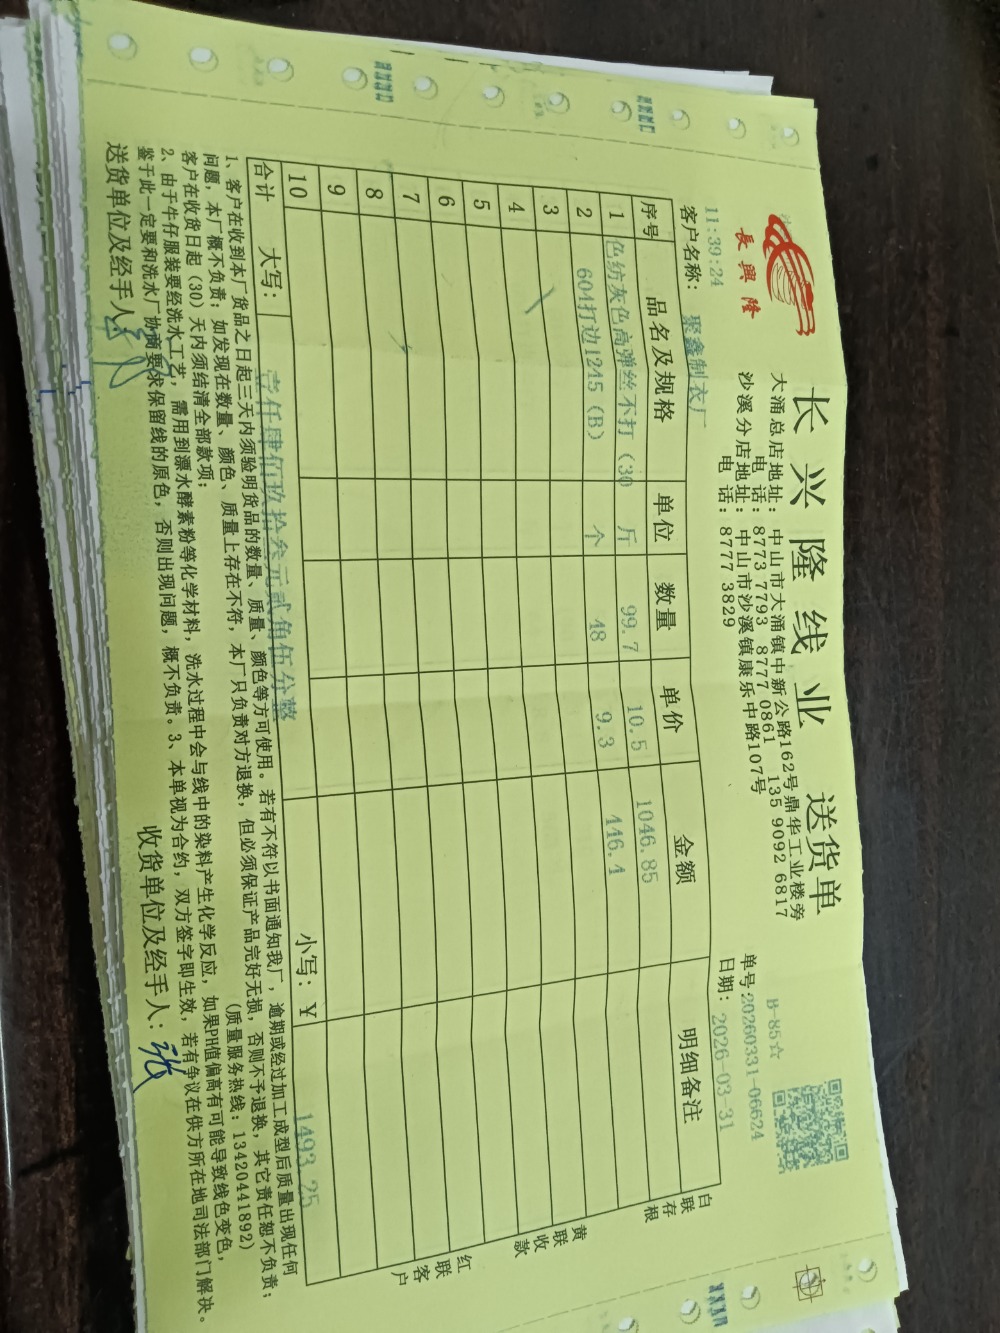 長興隆
长兴隆线业 送货单
大涌总店地址：中山市大涌镇中新公路162号鼎华工业楼旁
电话：8773 7793 8777 0861 135 9092 6817
沙溪分店地址：中山市沙溪镇康乐中路107号
电话：8777 3829
B-85☆
单号:20260331-06624
日期：2026-03-31
11:39:24
客户名称：聚鑫制衣厂
序号 品名及规格 单位 数量 单价 金额 明细备注
1 色纺灰色高弹丝不打（30 斤 99.7 10.5 1046.85
2 604打边1245（B） 个 48 9.3 446.4
3
4
5
6
7
8
9
10
合计 大写：壹仟肆佰玖拾叁元贰角伍分整 小写：￥ 1493.25
白联存根
黄联收款
红联客户
1、客户在收到本厂货品之日起三天内须验明货品的数量、质量、颜色等方可使用。若有不符以书面通知我厂，逾期或经过加工成型后质量出现任何
问题，本厂概不负责；如发现在数量、颜色、质量上存在不符，本厂只负责对方退换，但必须保证产品完好无损，否则不予退换，其它责任恕不负责；
客户在收货日起（30）天内须结清全部款项； （质量服务热线：13420441892）
2、由于牛仔服装要经洗水工艺，需用到漂水酵素粉等化学材料，洗水过程中会与线中的染料产生化学反应，如果PH值偏高有可能导致线色变色，
鉴于此一定要和洗水厂协商要求保留线的原色，否则出现问题，概不负责。3、本单视为合约，双方签字即生效，若有争议在供方所在地司法部门解决。
送货单位及经手人：
收货单位及经手人：张